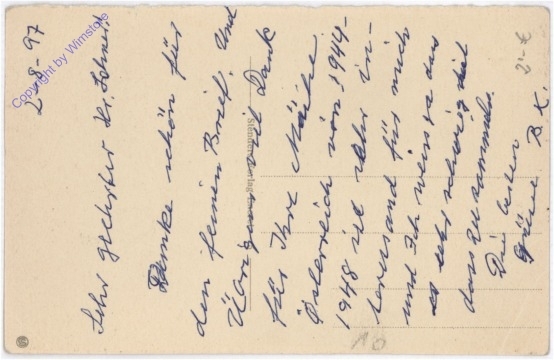 2-8-97
Sehr geehrter Hr.
Danke schön für
den feinen Brief. Und
Übrigens viel Dank
für Ihre Mühe.
Österreich von 1944-
1948 ist sehr in-
teressant für mich
und Ich weiss das
es sehr schwierig ist
das zu sammeln.
Die besten
Grüsse B.K.
2-€
10
Copyright by Winstore